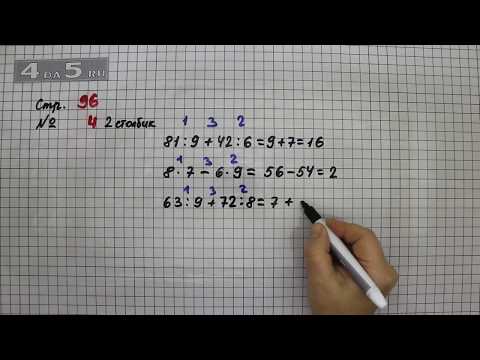 4 ДА 5.RU
Стр. 96
№ 4 2 столбик
1 3 2
81 : 9 + 42 : 6 = 9 + 7 = 16
1 3 2
8 · 7 − 6 · 9 = 56 − 54 = 2
1 3 2
63 : 9 + 72 : 8 = 7 +